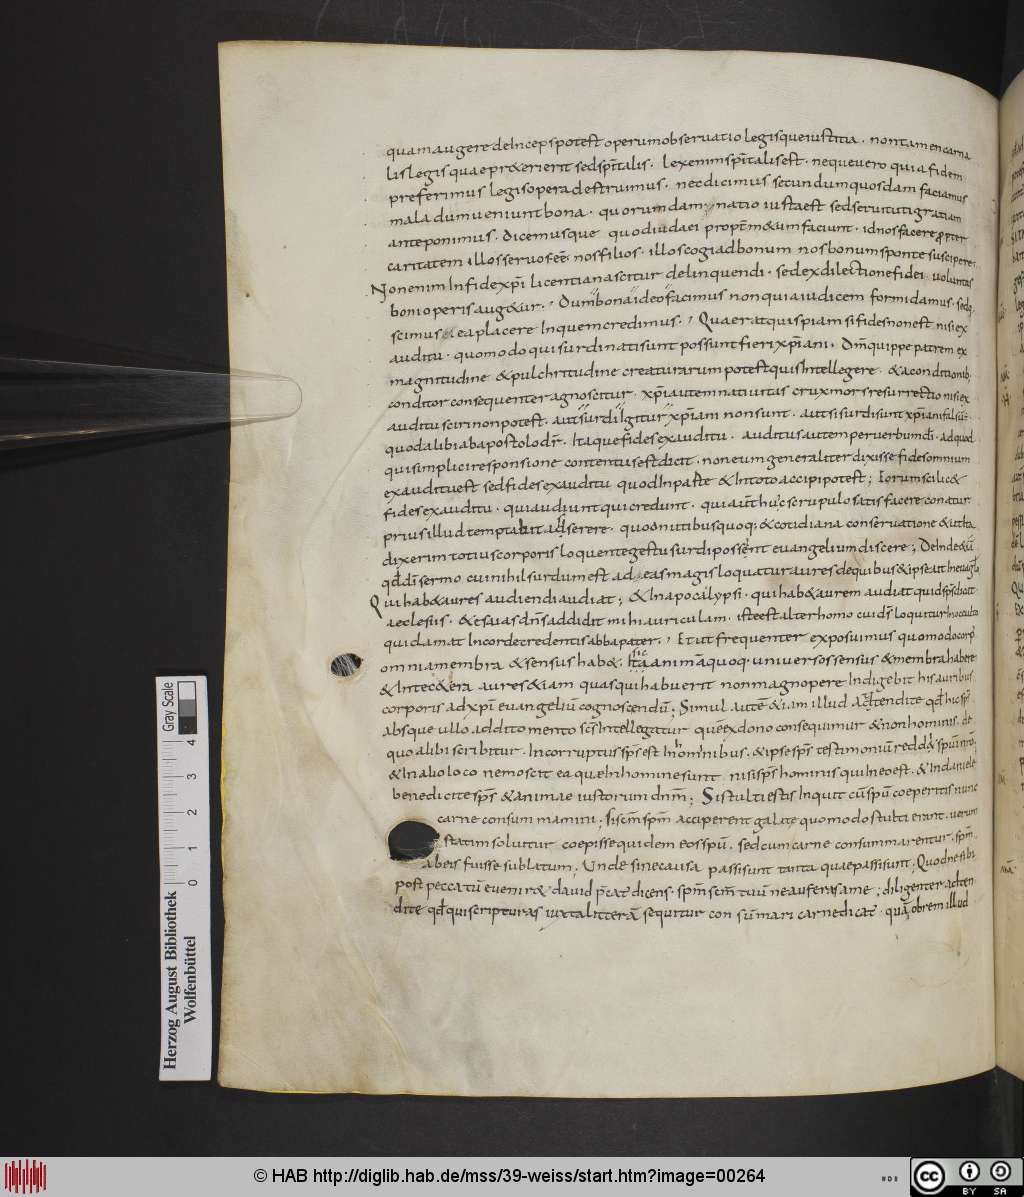 quam augere deinceps potest operum observatio legisque iustitia. non tamen carna
lis legis quae praeterierit sed spiritalis. lex enim spiritalis est. neque vero quia fidem
preferimus legis opera destruimus. nec dicimus secundum quosdam faciamus
mala dum veniunt bona. quorum damnatio iusta est sed servituti gratiam
anteponimus. dicemusque quod iudaei propter metum faciunt. id nos facere propter
caritatem illos servos esse nos filios. illos cogi ad bonum nos bonum sponte suscipere.
Non enim in fide xpi licentia nascitur delinquendi. sed ex dilectione fidei voluntas
boni operis aug&ur. Dum bona ideo facimus non quia iudicem formidamus. sed q;
scimus ea placere In quem credimus. Quaerat quispiam si fides non est nisi ex
auditu. quomodo qui surdi nati sunt possunt fieri xpiani. Dm quippe patrem ex
magnitudine & pulchritudine creaturarum potest quis Intellegere. & a conditionib;
conditor consequenter agnoscitur. xpi autem nativitas crux mors resurrectio nisi ex
auditu sciri non potest. aut surdi igitur xpiani non sunt. aut si surdi sunt xpiani falsum e
quod alibi ab apostolo dr. Itaque fides ex auditu. auditus autem per verbum di. ad quod
qui simplici responsione contentus est dicit. non eum generaliter dixisse fides omnium
ex auditu est sed fides ex auditu quod In parte & In toto accipi potest; Eorum scilic&
fides ex auditu. qui audiunt qui credunt. qui aut huic scrupulo satisfacere conatur
prius illud temptabit adserere. quod nutibus quoq; & cotidiana conservatione & ut ita
dixerim totius corporis loquente gestu surdi possent evangelium discere; Deinde &
qd di sermo cui nihil surdum est ad eas magis loquatur aures de quibus & ipse ait In evang̅lo
Qui hab& aures audiendi audiat; & In apocalypsi. qui hab& aurem audiat quid sps dicit
aeclesiis. & esaias dns addidit mihi auriculam. iste est alter homo cui ds loquitur In occulto
qui clamat In corde credentis abba pater. Et ut frequenter exposuimus quomodo corp
omnia membra & sensus hab&. Ita anima quoq. universos sensus & membra habere
& Inter c&era aures & iam quas qui habuerit non magnopere Indigebit his auribus
corporis ad xpi evangeliu cognoscendu; Simul aute & iam illud adtendite qd hic sps
absque ullo additomento scs Intellegatur que ex dono consequimur & non hominis. de
quo alibi scribitur. Incorruptus sps est In omnibus. & ipse sps testimoniu redd& spui nro
& In alio loco nemo scit ea quae In homine sunt nisi sps hominis qui In eo est. & In daniele
benedicite sps & animae iustorum dnm; Si stulti estis Inquit cu spu coeperitis nunc
carne consummamini; si scm spm acciperent galate quomodo stulti erant. verum
statim solvitur coepisse quidem eos spu. sed cum carne consummarentur. spm
ab eis fuisse sublatum; Unde sine causa passi sunt tanta quae passi sunt; Quod ne sibi
post peccatu evenir& david pcat dicens. spm scm tuu ne auferas a me; diligenter adten
dite qd qui scripturas iuxta littera sequitur consumari carne dicat. qua obrem illud
Gray Scale
0 1 2 3 4
Herzog August Bibliothek
Wolfenbüttel
© HAB http://diglib.hab.de/mss/39-weiss/start.htm?image=00264
cc BY SA